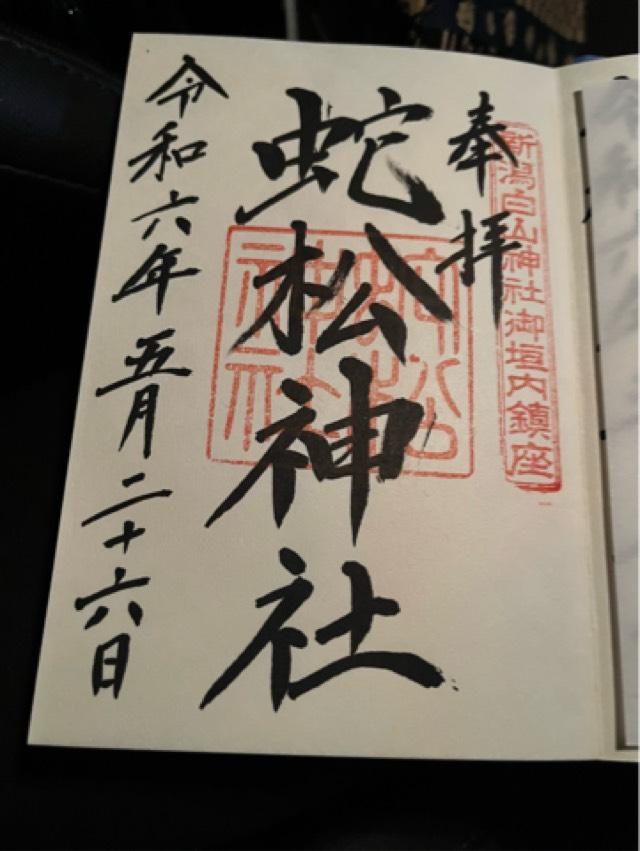 奉拝
新潟白山神社御垣内鎮座
蛇松神社
蛇松
神社
令和六年五月二十六日